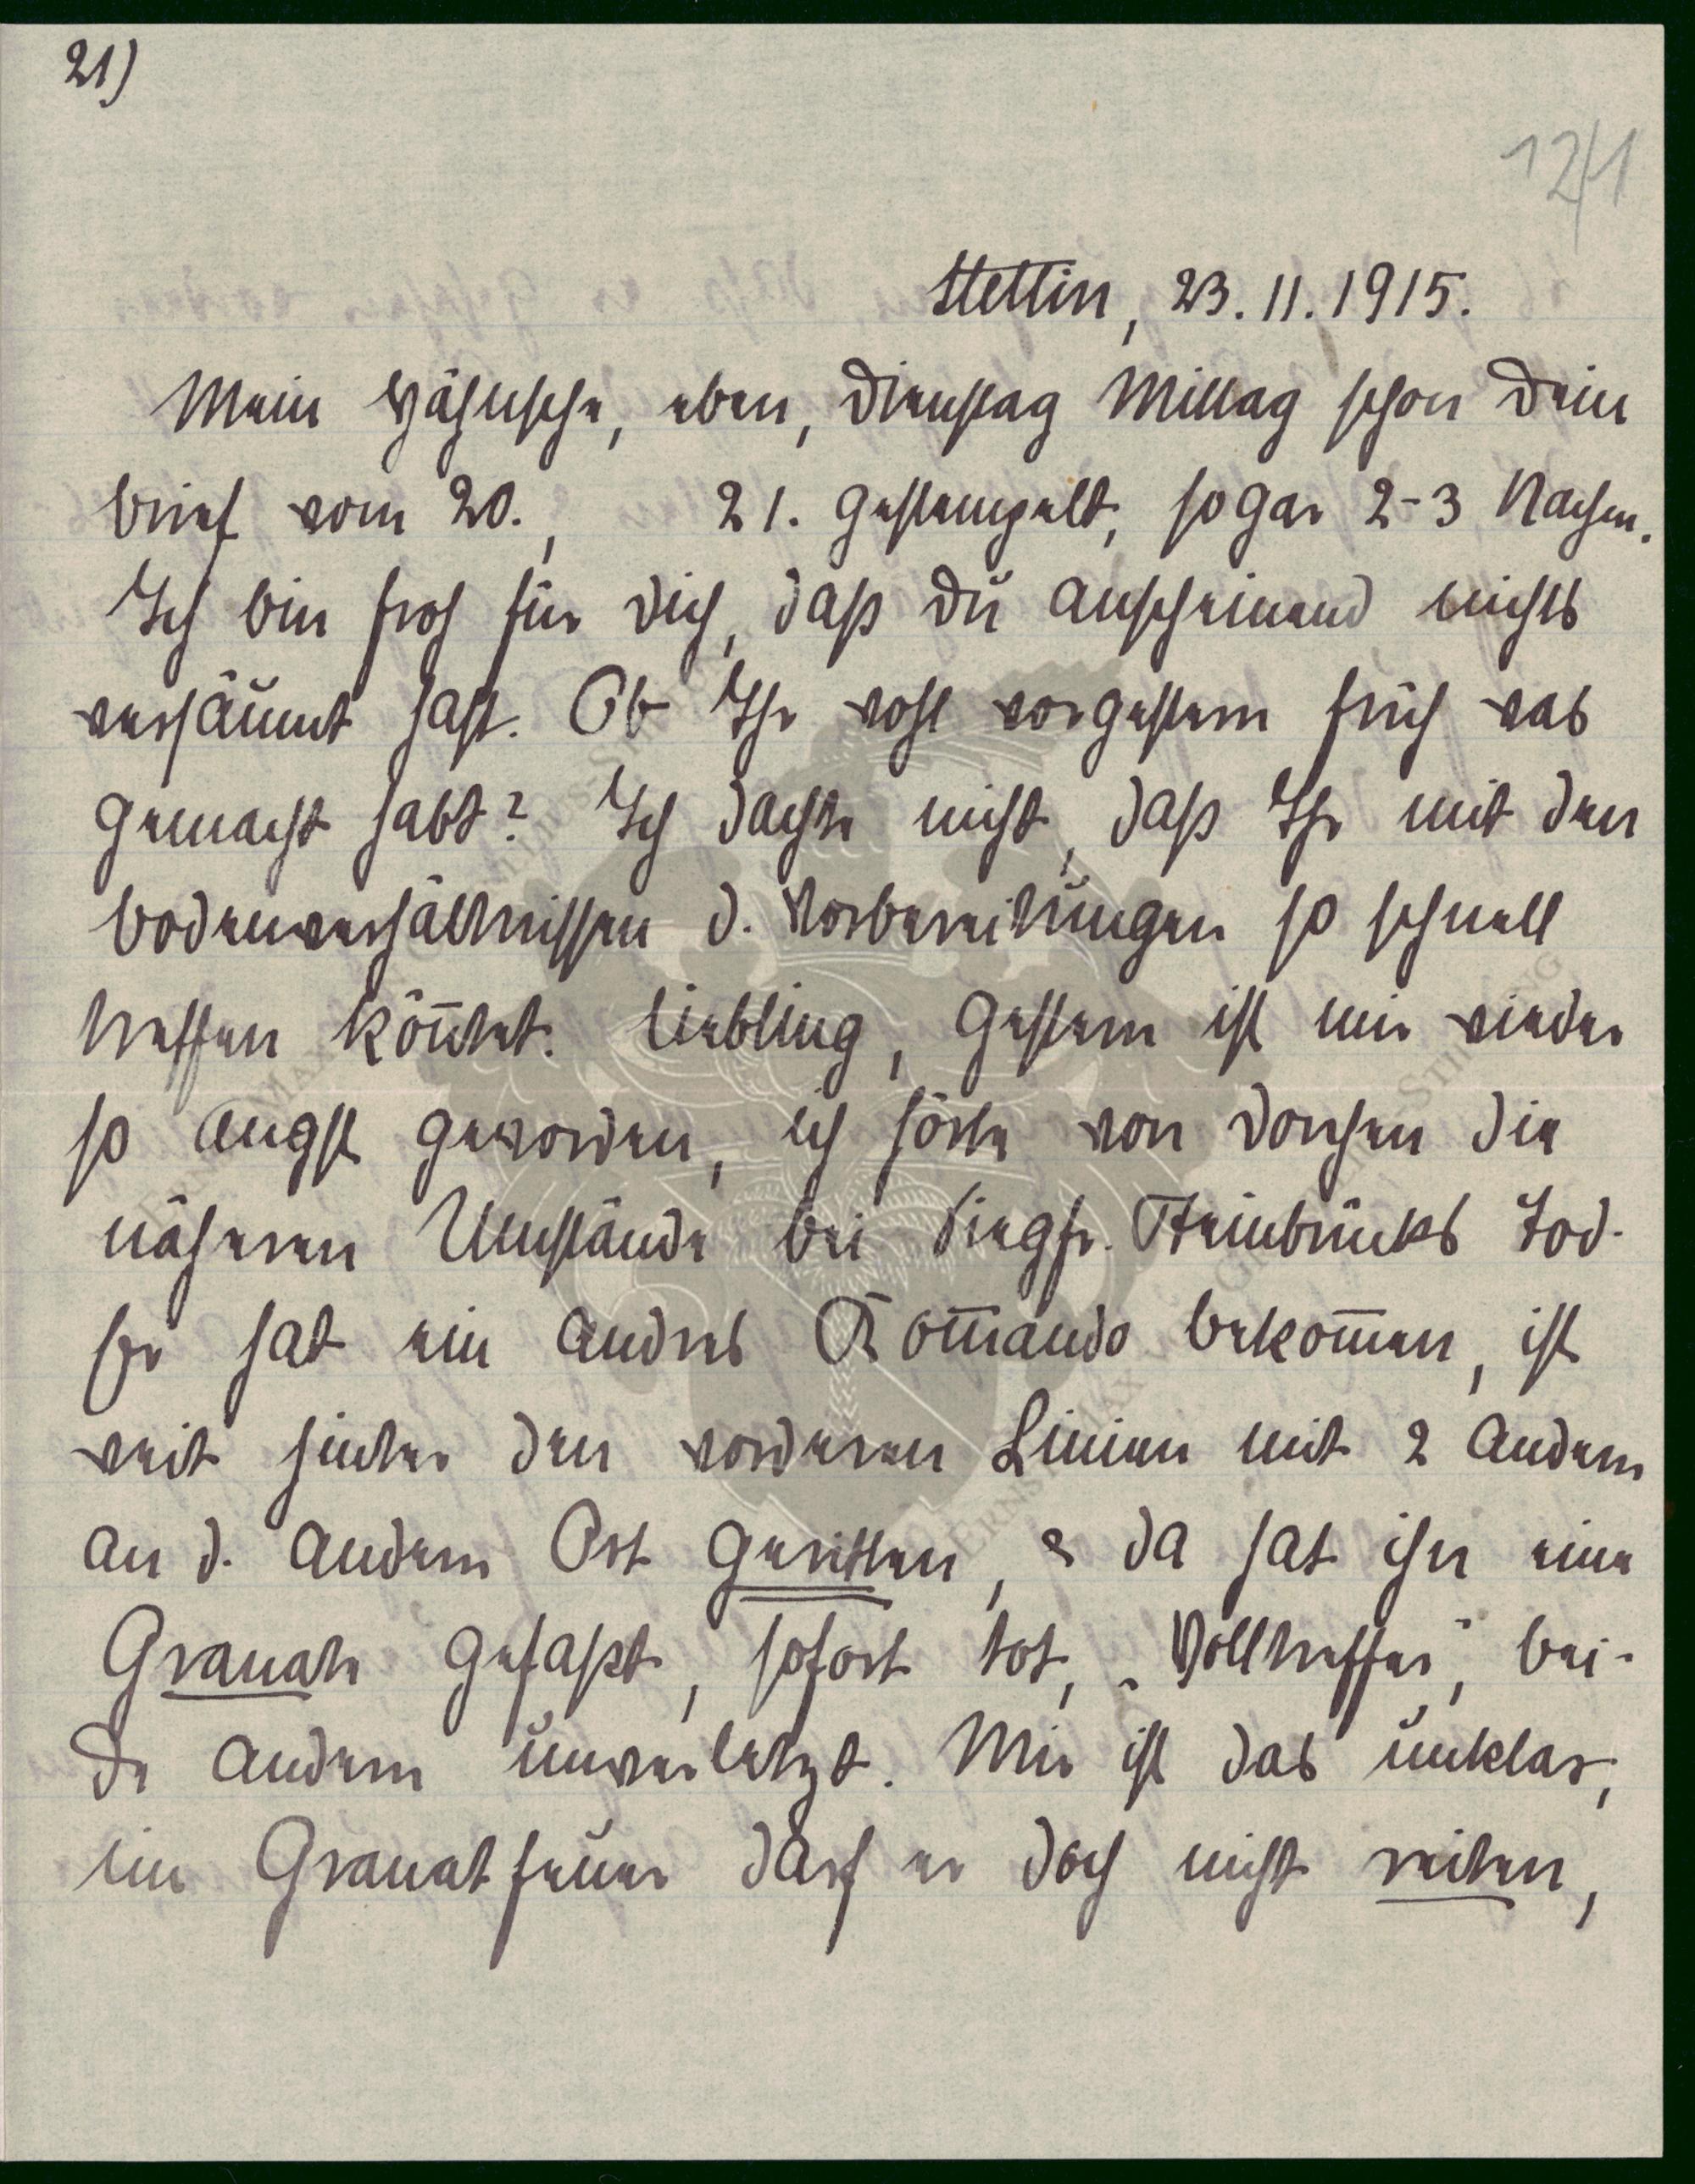 21)
124
Stettin, 23.11.1915.
Mein Hähnsche, eben, Dienstag Mittag schon Dein
Brief vom 20., 21. gestempelt, sogar 2-3 Nachm.
Ich bin froh für Dich, daß Du anscheinend nichts
versäumt hast. Ob Ihr wohl vorgestern früh was
gemacht habt? Ich dachte nicht, daß Ihr mit den
Bodenverhältnissen d. Vorbereitungen so schnell
treffen kön̄tet. Liebling, gestern ist mir wieder
so angst geworden, ich hörte von Dorchen die
näheren Umstände bei Siegfr. Steinbrücks Tod.
Er hat ein andres Kom̄ando bekom̄en, ist
weit hinter den vorderen Linien mit 2 andern
an d. andern Ort geritten, & da hat ihn eine
Granate gefaßt, sofort tot, „Volltreffer", bei-
de andern unverletzt. Mir ist das unklar,
im Granatfeuer darf er doch nicht reiten,